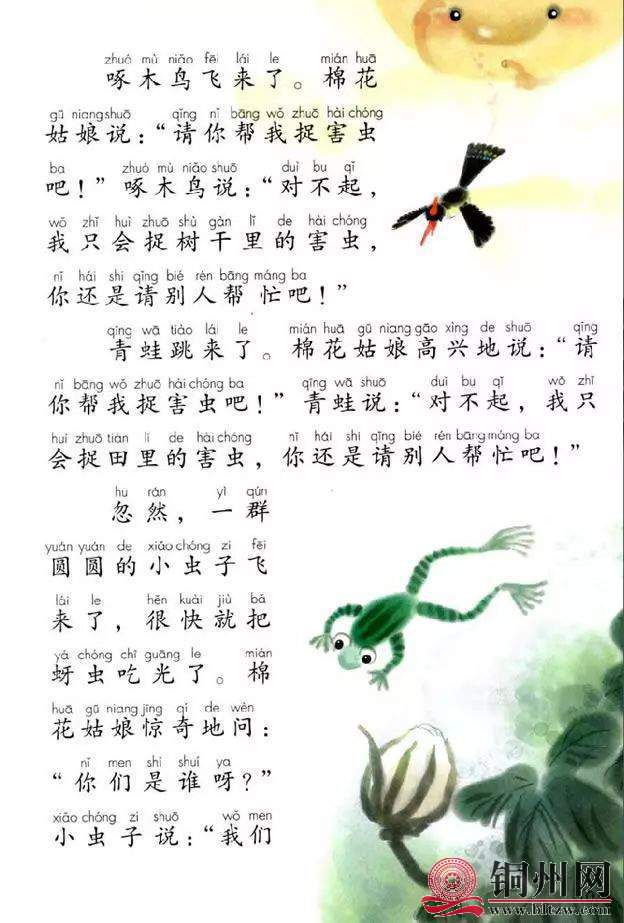 zhuó mù niǎo fēi lái le mián huā
啄木鸟飞来了。棉花
gū niang shuō qǐng nǐ bāng wǒ zhuō hài chóng
姑娘说：“请你帮我捉害虫
ba zhuó mù niǎo shuō duì bu qǐ
吧！”啄木鸟说：“对不起，
wǒ zhǐ huì zhuō shù gàn lǐ de hài chóng
我只会捉树干里的害虫，
nǐ hái shi qǐng bié rén bāng máng ba
你还是请别人帮忙吧！”
qīng wā tiào lái le mián huā gū niang gāo xìng de shuō qǐng
青蛙跳来了。棉花姑娘高兴地说：“请
nǐ bāng wǒ zhuō hài chóng ba qīng wā shuō duì bu qǐ wǒ zhǐ
你帮我捉害虫吧！”青蛙说：“对不起，我只
huì zhuō tián li de hài chóng nǐ hái shi qǐng bié rén bāng máng ba
会捉田里的害虫，你还是请别人帮忙吧！”
hū rán yì qún
忽然，一群
yuán yuán de xiǎo chóng zi fēi
圆圆的小虫子飞
lái le hěn kuài jiù bǎ
来了，很快就把
yá chóng chī guāng le mián
蚜虫吃光了。棉
huā gū niang jīng qí de wèn
花姑娘惊奇地问：
nǐ men shì shuí ya
“你们是谁呀？”
xiǎo chóng zi shuō wǒ men
小虫子说：“我们
铜州网
www.bltzw.com